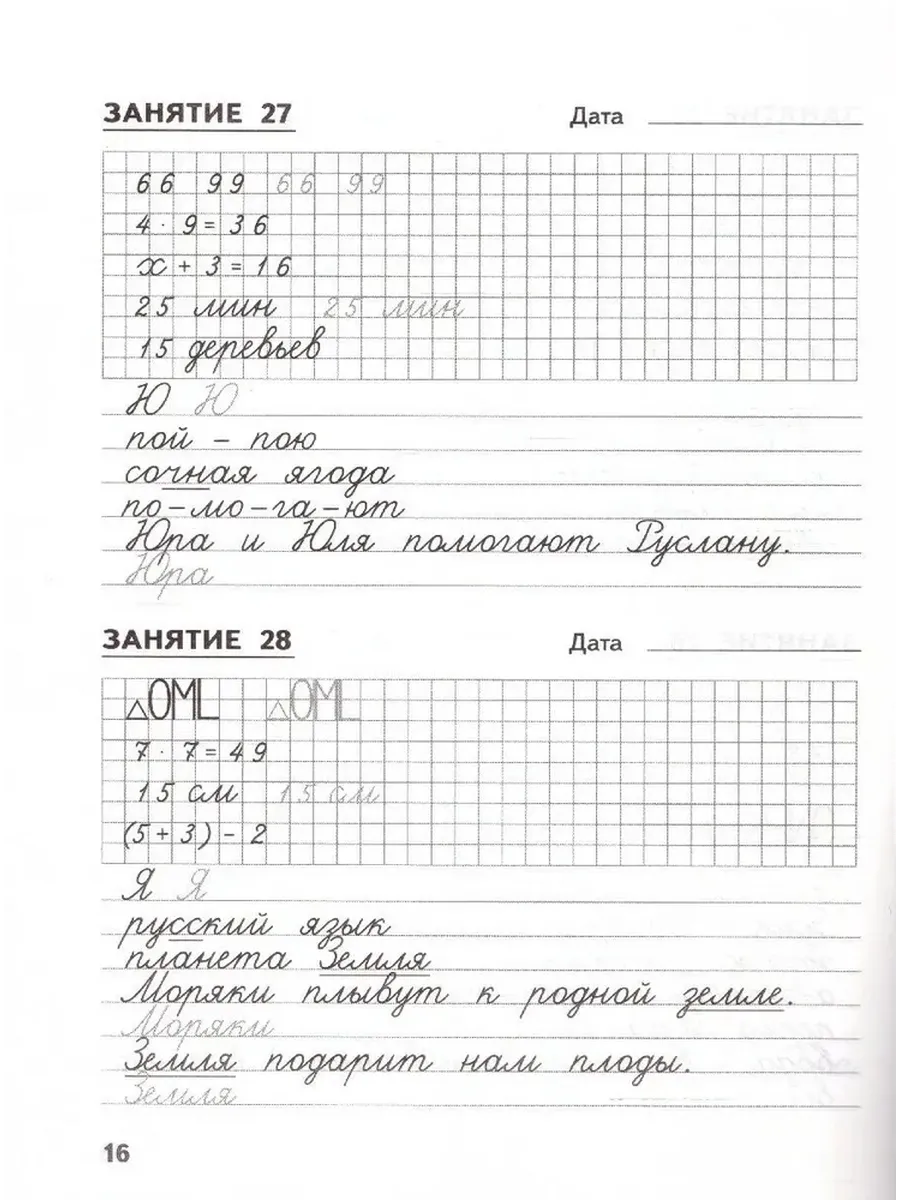 ЗАНЯТИЕ 27 Дата
66 99 66 99
4 · 9 = 36
х + 3 = 16
25 мин 25 мин
15 деревьев
Ю Ю
пой – пою
сочная ягода
по–мо–га–ют
Юра и Юля помогают Руслану.
Юра
ЗАНЯТИЕ 28 Дата
△OML △OML
7 · 7 = 49
15 см 15 см
(5 + 3) – 2
Я Я
русский язык
планета Земля
Моряки плывут к родной земле.
Моряки
Земля подарит нам плоды.
Земля
16